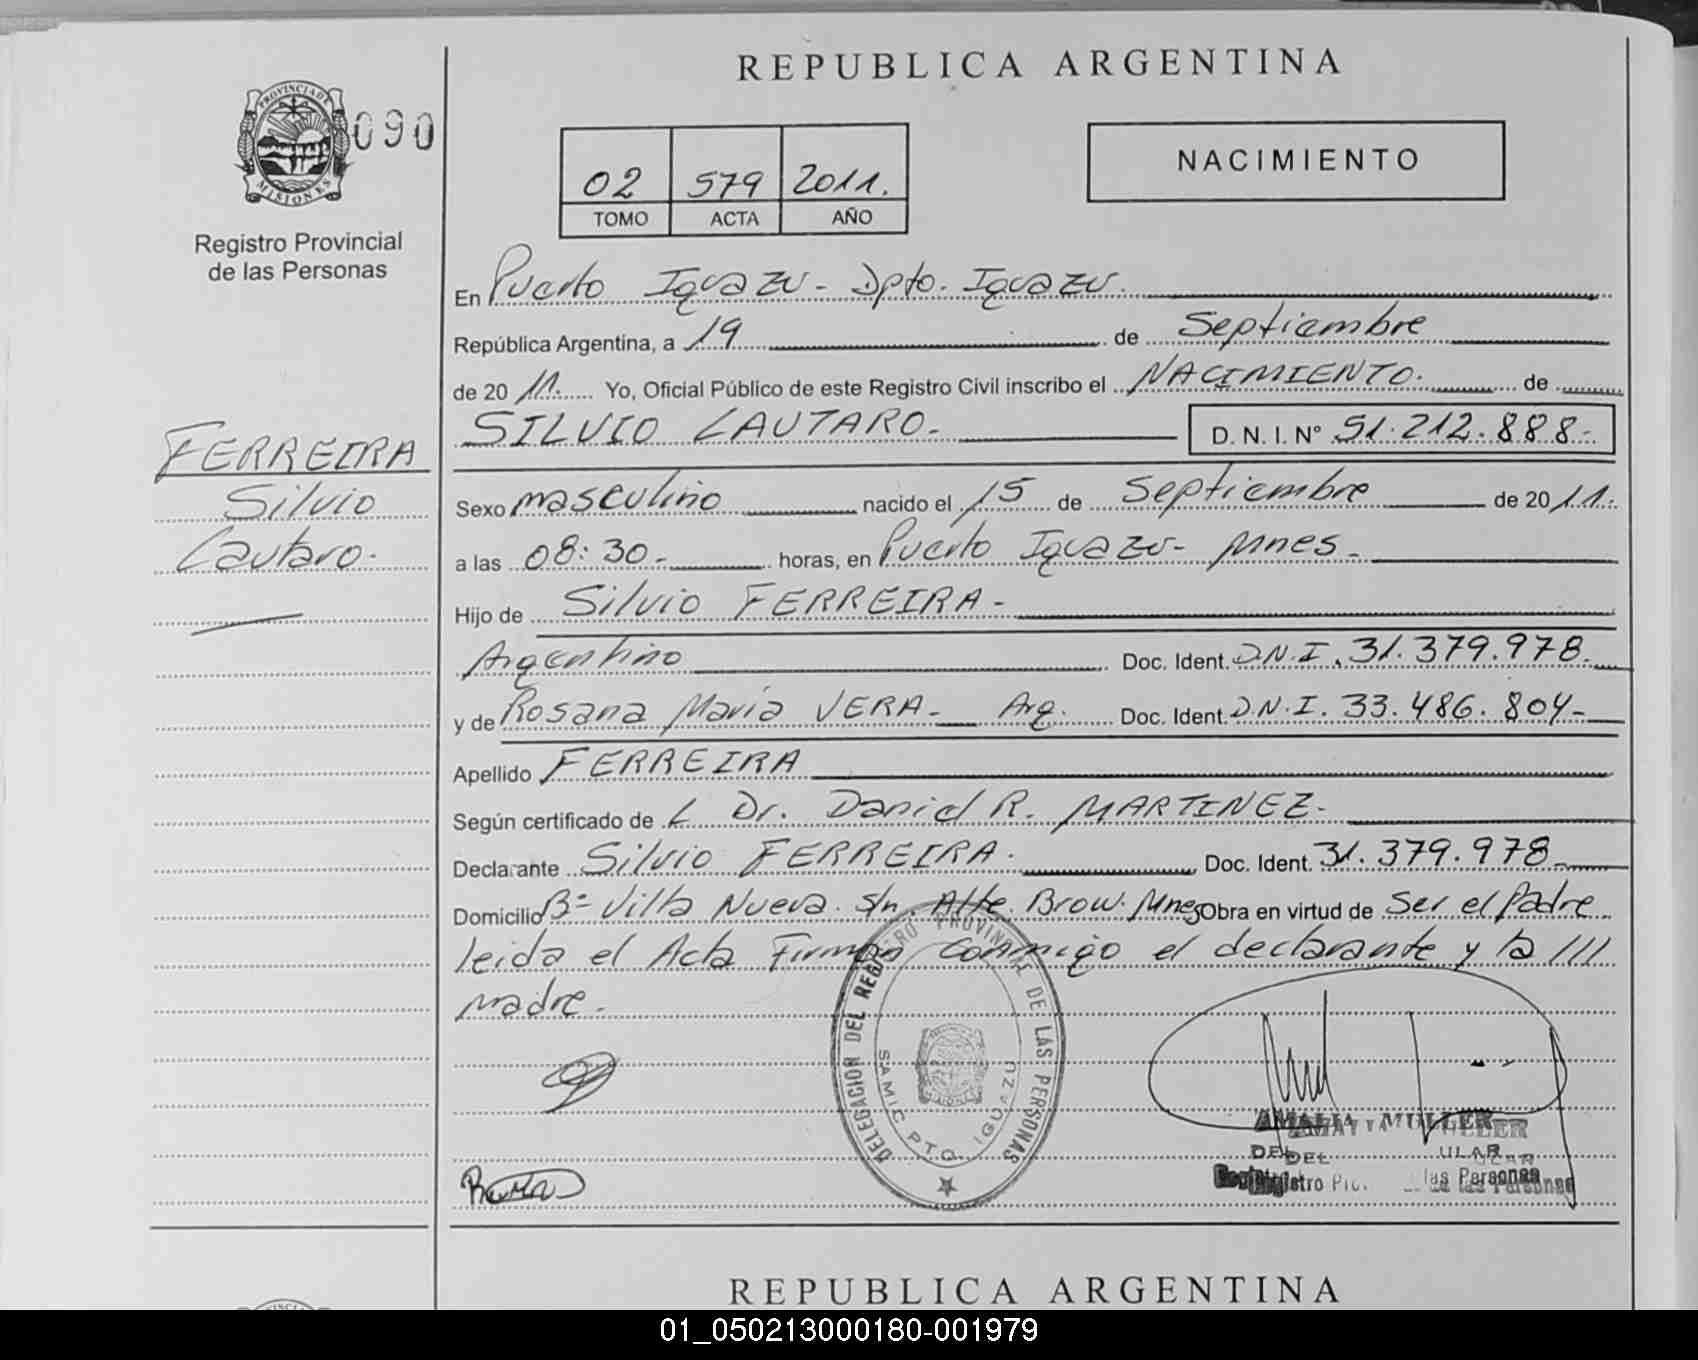 REPUBLICA ARGENTINA
PROVINCIA DE MISIONES
090
Registro Provincial
de las Personas
02 579 2011.
TOMO ACTA AÑO
NACIMIENTO
En Puerto Iguazu - Dpto. Iguazu.
República Argentina, a 19 de Septiembre
de 2011. Yo, Oficial Público de este Registro Civil inscribo el NACIMIENTO. de
SILVIO LAUTARO.- D. N. I. Nº 51.212.888-
FERREIRA
Silvio
Lautaro.
Sexo masculino nacido el 15 de Septiembre de 2011.
a las 08:30.- horas, en Puerto Iguazu- Mnes.
Hijo de Silvio FERREIRA-
Argentino Doc. Ident. D.N.I. 31.379.978.
y de Rosana María VERA- Arg. Doc. Ident. D.N.I. 33.486.804-
Apellido FERREIRA
Según certificado de L Dr. Daniel R. MARTINEZ-
Declarante Silvio FERREIRA. Doc. Ident. 31.379.978
Domicilio Bº Villa Nueva s/n. Alte. Brow. Mnes Obra en virtud de Ser el Padre
leida el Acta Firman conmigo el declarante y la ///
madre.-
DELEGACION DEL REGISTRO PROVINCIAL DE LAS PERSONAS
SAMIC PTO. IGUAZU
AMALIA MULLER
las Personas
REPUBLICA ARGENTINA
01_050213000180-001979